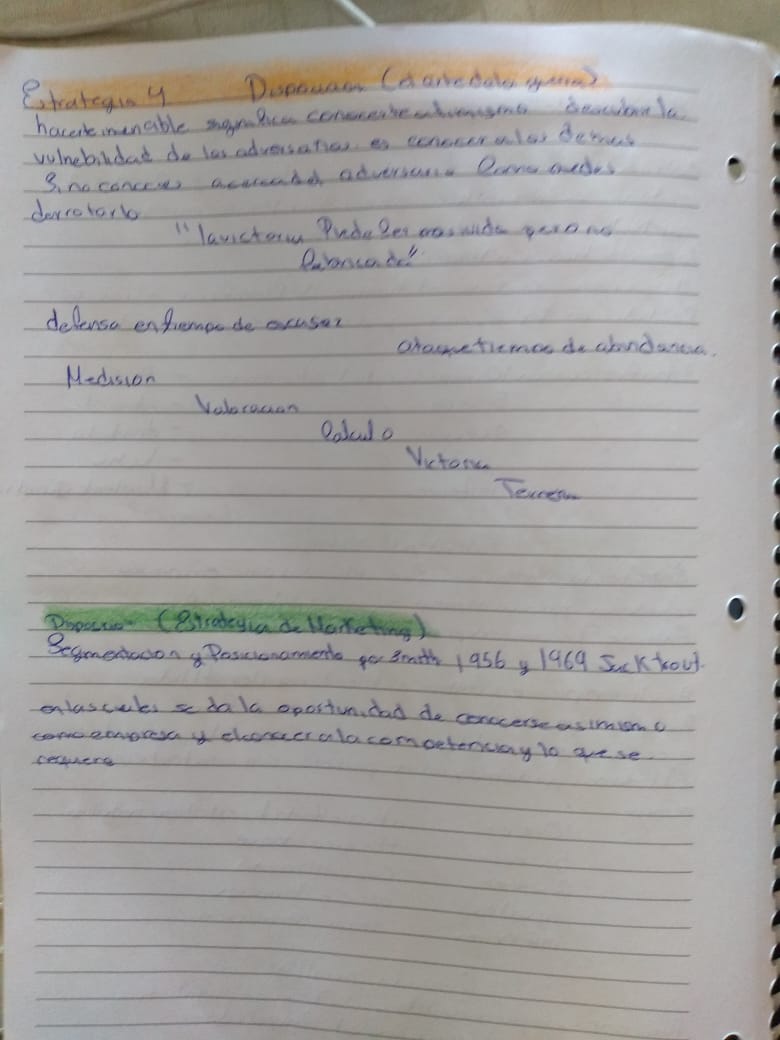 Estrategia 4 Disposicion (el arte de la guerra)
hacerte invencible significa conocerte a ti mismo descubrir la
vulnebilidad de los adversatios es conocer a los demas
Si no conoces a tu adversario Como puedes
derrotarlo
"la victoria Puede Ser pero no
fabricada"
defensa en tiempo de escasez
ataque tiempos de abundancia.
Medision
Valoracion
Calculo
Victoria
Terreno
Disposicio (Estrategia de Marketing)
Segmentacion y Posicionamiento por Smith 1956 y 1969 Jack trout.
en las cuales se da la oportunidad de conocerse asimismo
como empresa y el conocer a la competencia y lo que se
requiere